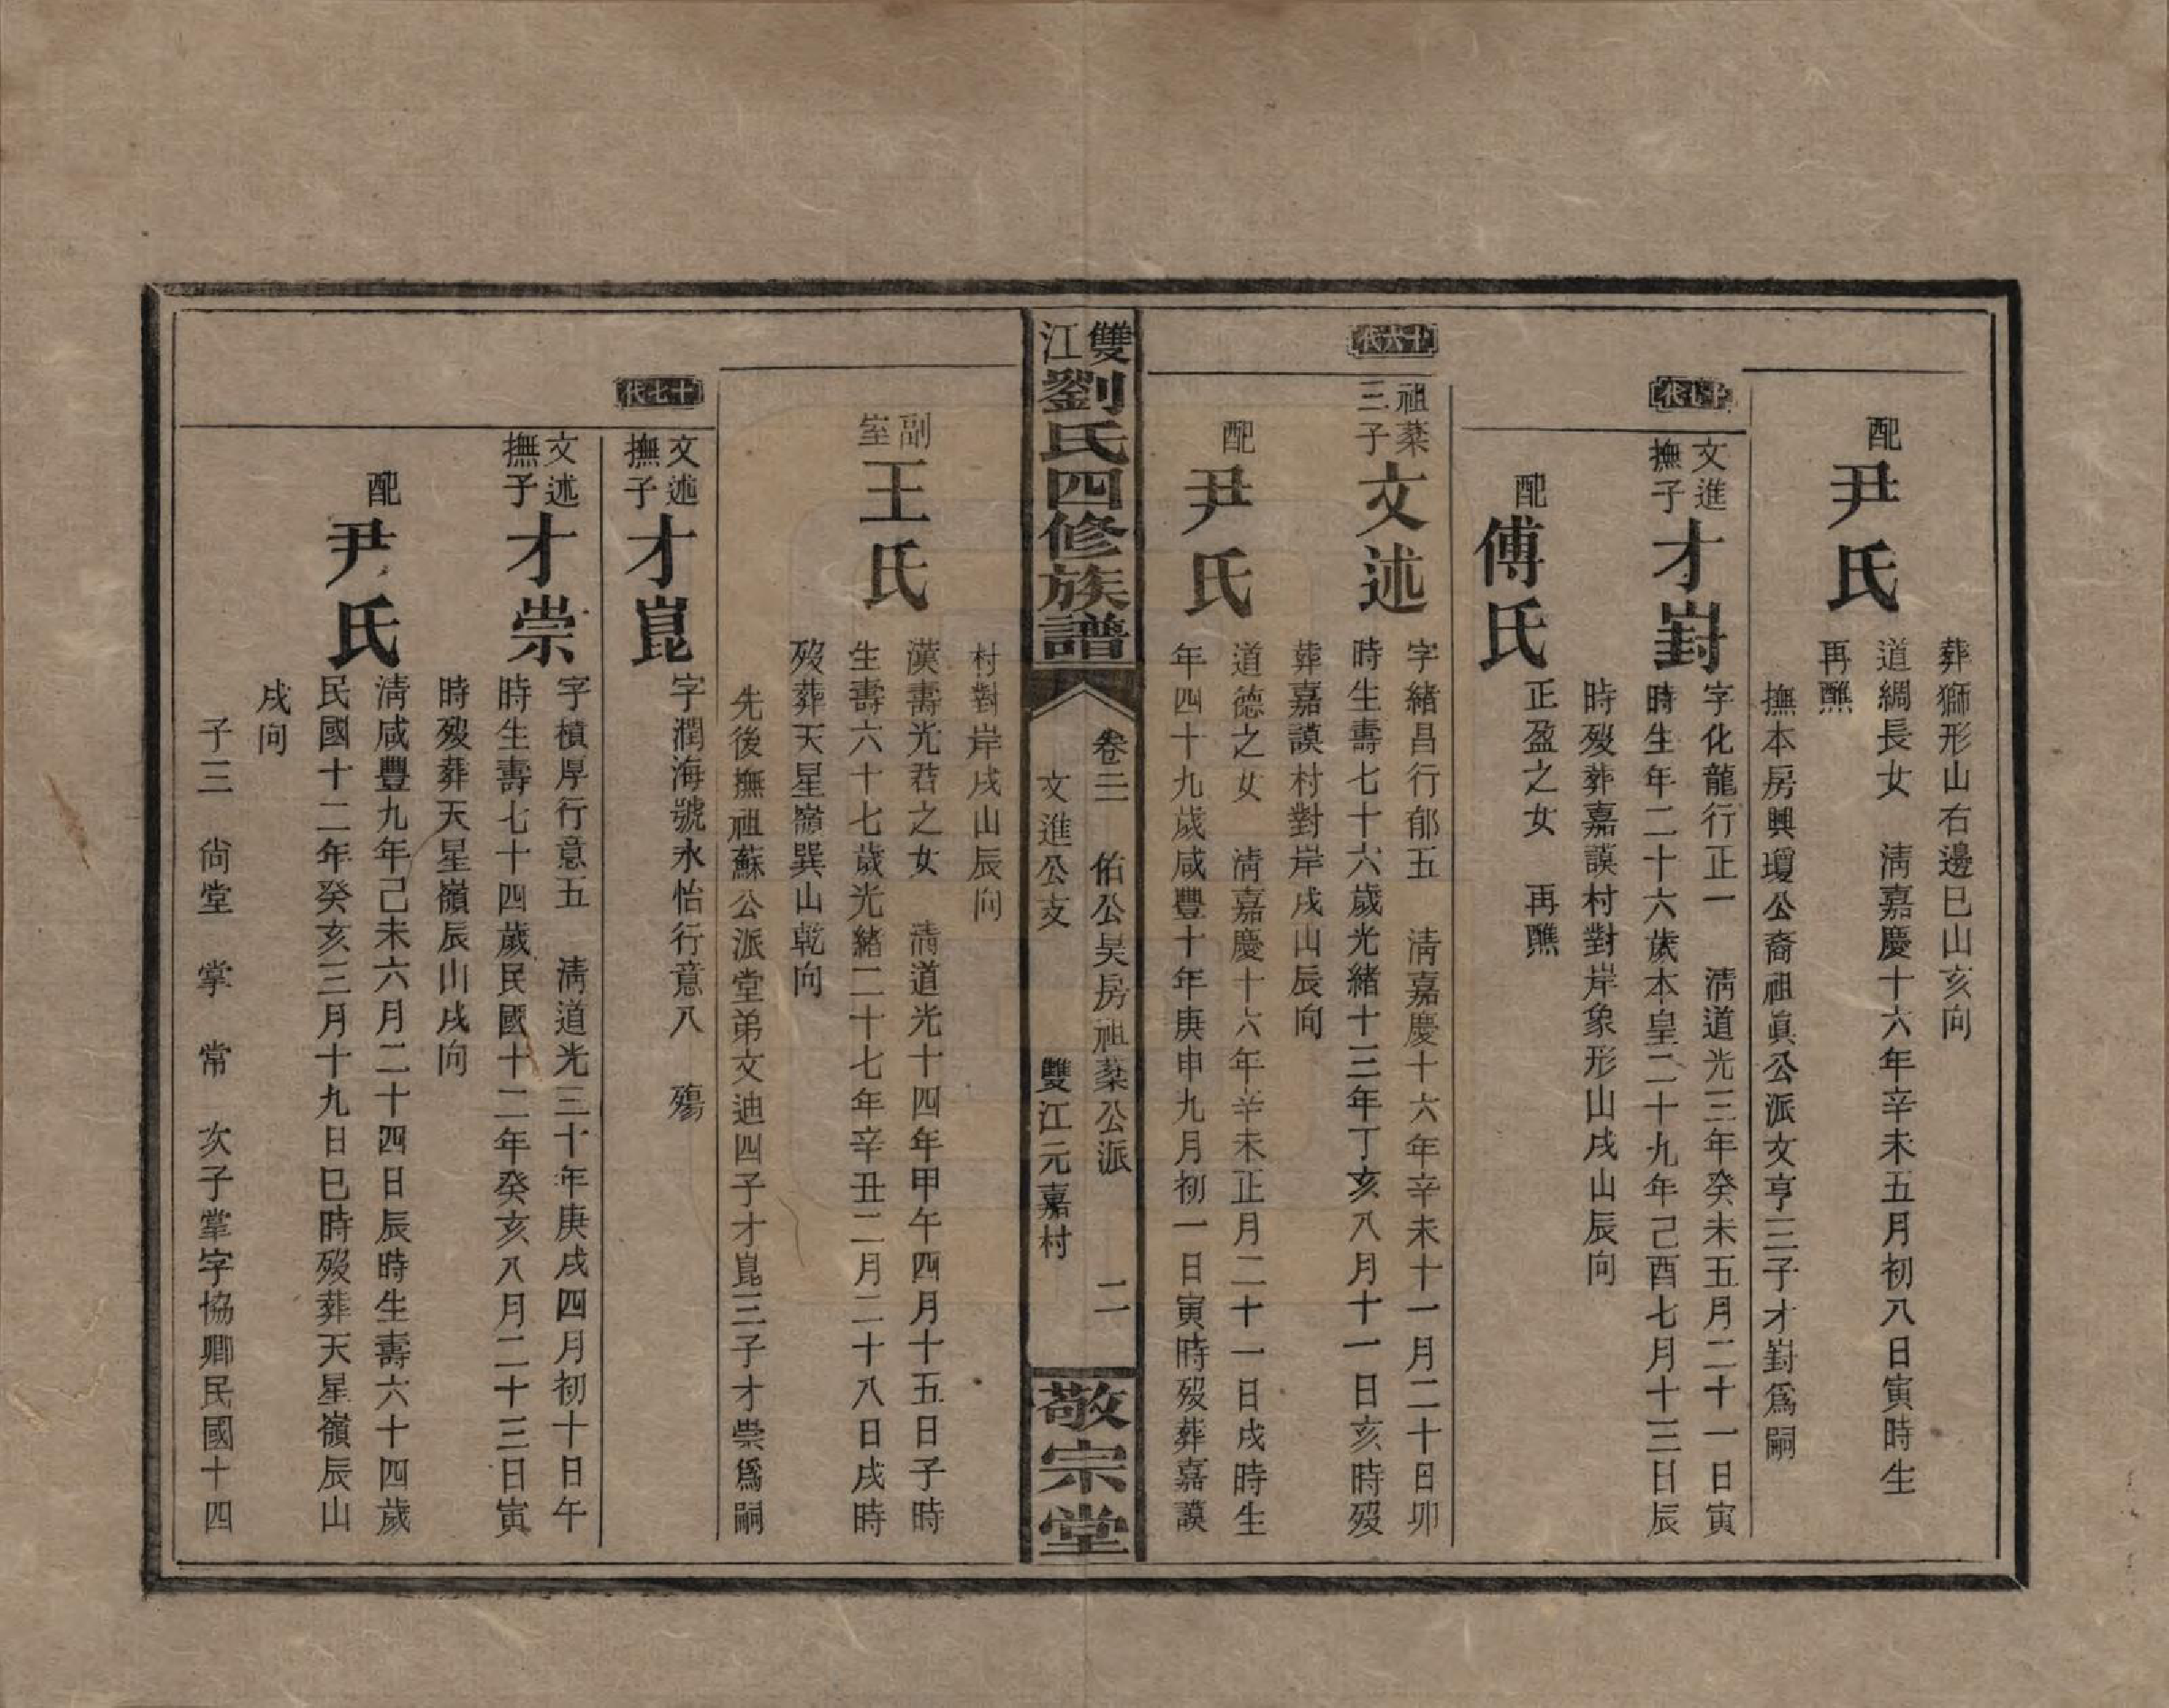 葬獅形山右邊巳山亥向
配
尹氏
道綢長女　淸嘉慶十六年辛未五月初八日寅時生
再醮
撫本房興瓊公裔祖眞公派文亨三子才崶爲嗣
十七代
文進
撫子
才崶
字化龍行正一　淸道光三年癸未五月二十一日寅
時生年二十六歲本皇二十九年己酉七月十三日辰
時歿葬嘉謨村對岸象形山戌山辰向
配
傅氏
正盈之女　再醮
十六代
祖蘂
三子
文述
字緒昌行郁五　淸嘉慶十六年辛未十一月二十日卯
時生壽七十六歲光緒十三年丁亥八月十一日亥時歿
葬嘉謨村對岸戌山辰向
配
尹氏
道德之女　淸嘉慶十六年辛未正月二十一日戌時生
年四十九歲咸豐十年庚申九月初一日寅時歿葬嘉謨
雙江
劉氏四修族譜
卷二　佑公昊房祖蘂公派　二
文進公支　雙江元嘉村
敬宗堂
村對岸戌山辰向
副室
王氏
漢壽光君之女　淸道光十四年甲午四月十五日子時
生壽六十七歲光緒二十七年辛丑二月二十八日戌時
歿葬天星嶺巽山乾向
先後撫祖蘇公派堂弟文迪四子才崑三子才崇爲嗣
十七代
文述
撫子
才崑
字潤海號永怡行意八　殤
文述
撫子
才崇
字積厚行意五　淸道光三十年庚戌四月初十日午
時生壽七十四歲民國十二年癸亥八月二十三日寅
時歿葬天星嶺辰山戌向
配
尹氏
淸咸豐九年己未六月二十四日辰時生壽六十四歲
民國十二年癸亥三月十九日巳時歿葬天星嶺辰山
戌向
子三　尙堂　掌　常　次子掌字協卿民國十四